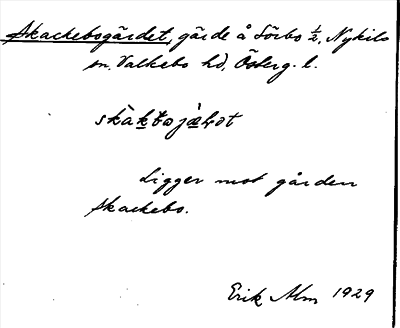 Skackebogärdet, gärde å Sörbo 1/2, Nykils
sn, Valkebo hd, Österg. l.
Ligger mot gården
Skackebo.
Erik Alm 1929